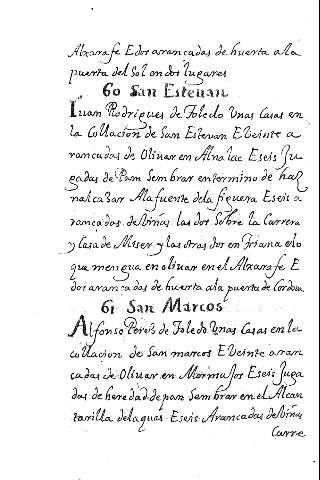 Alxarafe E dos arancadas de huerta ala
puerta del Sol en dos lugares
60 San Esteuan
Iuan Rodrigues de Toledo Unas Casas en
la Collacion de San Esteuan E Veinte a
rancadas de Oliuar en Alnalac E seis Ju
gadas de Pan Sembrar en termino de haz
nalcazar Ala fuente dela figuera E seis a
rancadas de Viñas las dos Sobre la Carrera
y Casa de Miser y las otras dos en Triana e lo
que mengua en oliuar en el Alxarafe E
dos arancadas de huerta ala puerta de Cordoua
61 San Marcos
Alfonso Pereis de Toledo Unas Casas en la
collacion de San marcos E Veinte aran
cadas de Oliuar en Mormujos E seis Juga
das de heredad de pan Sembrar en el Alcan
tarilla delaguas E seis Arancadas de Viñas
Carre